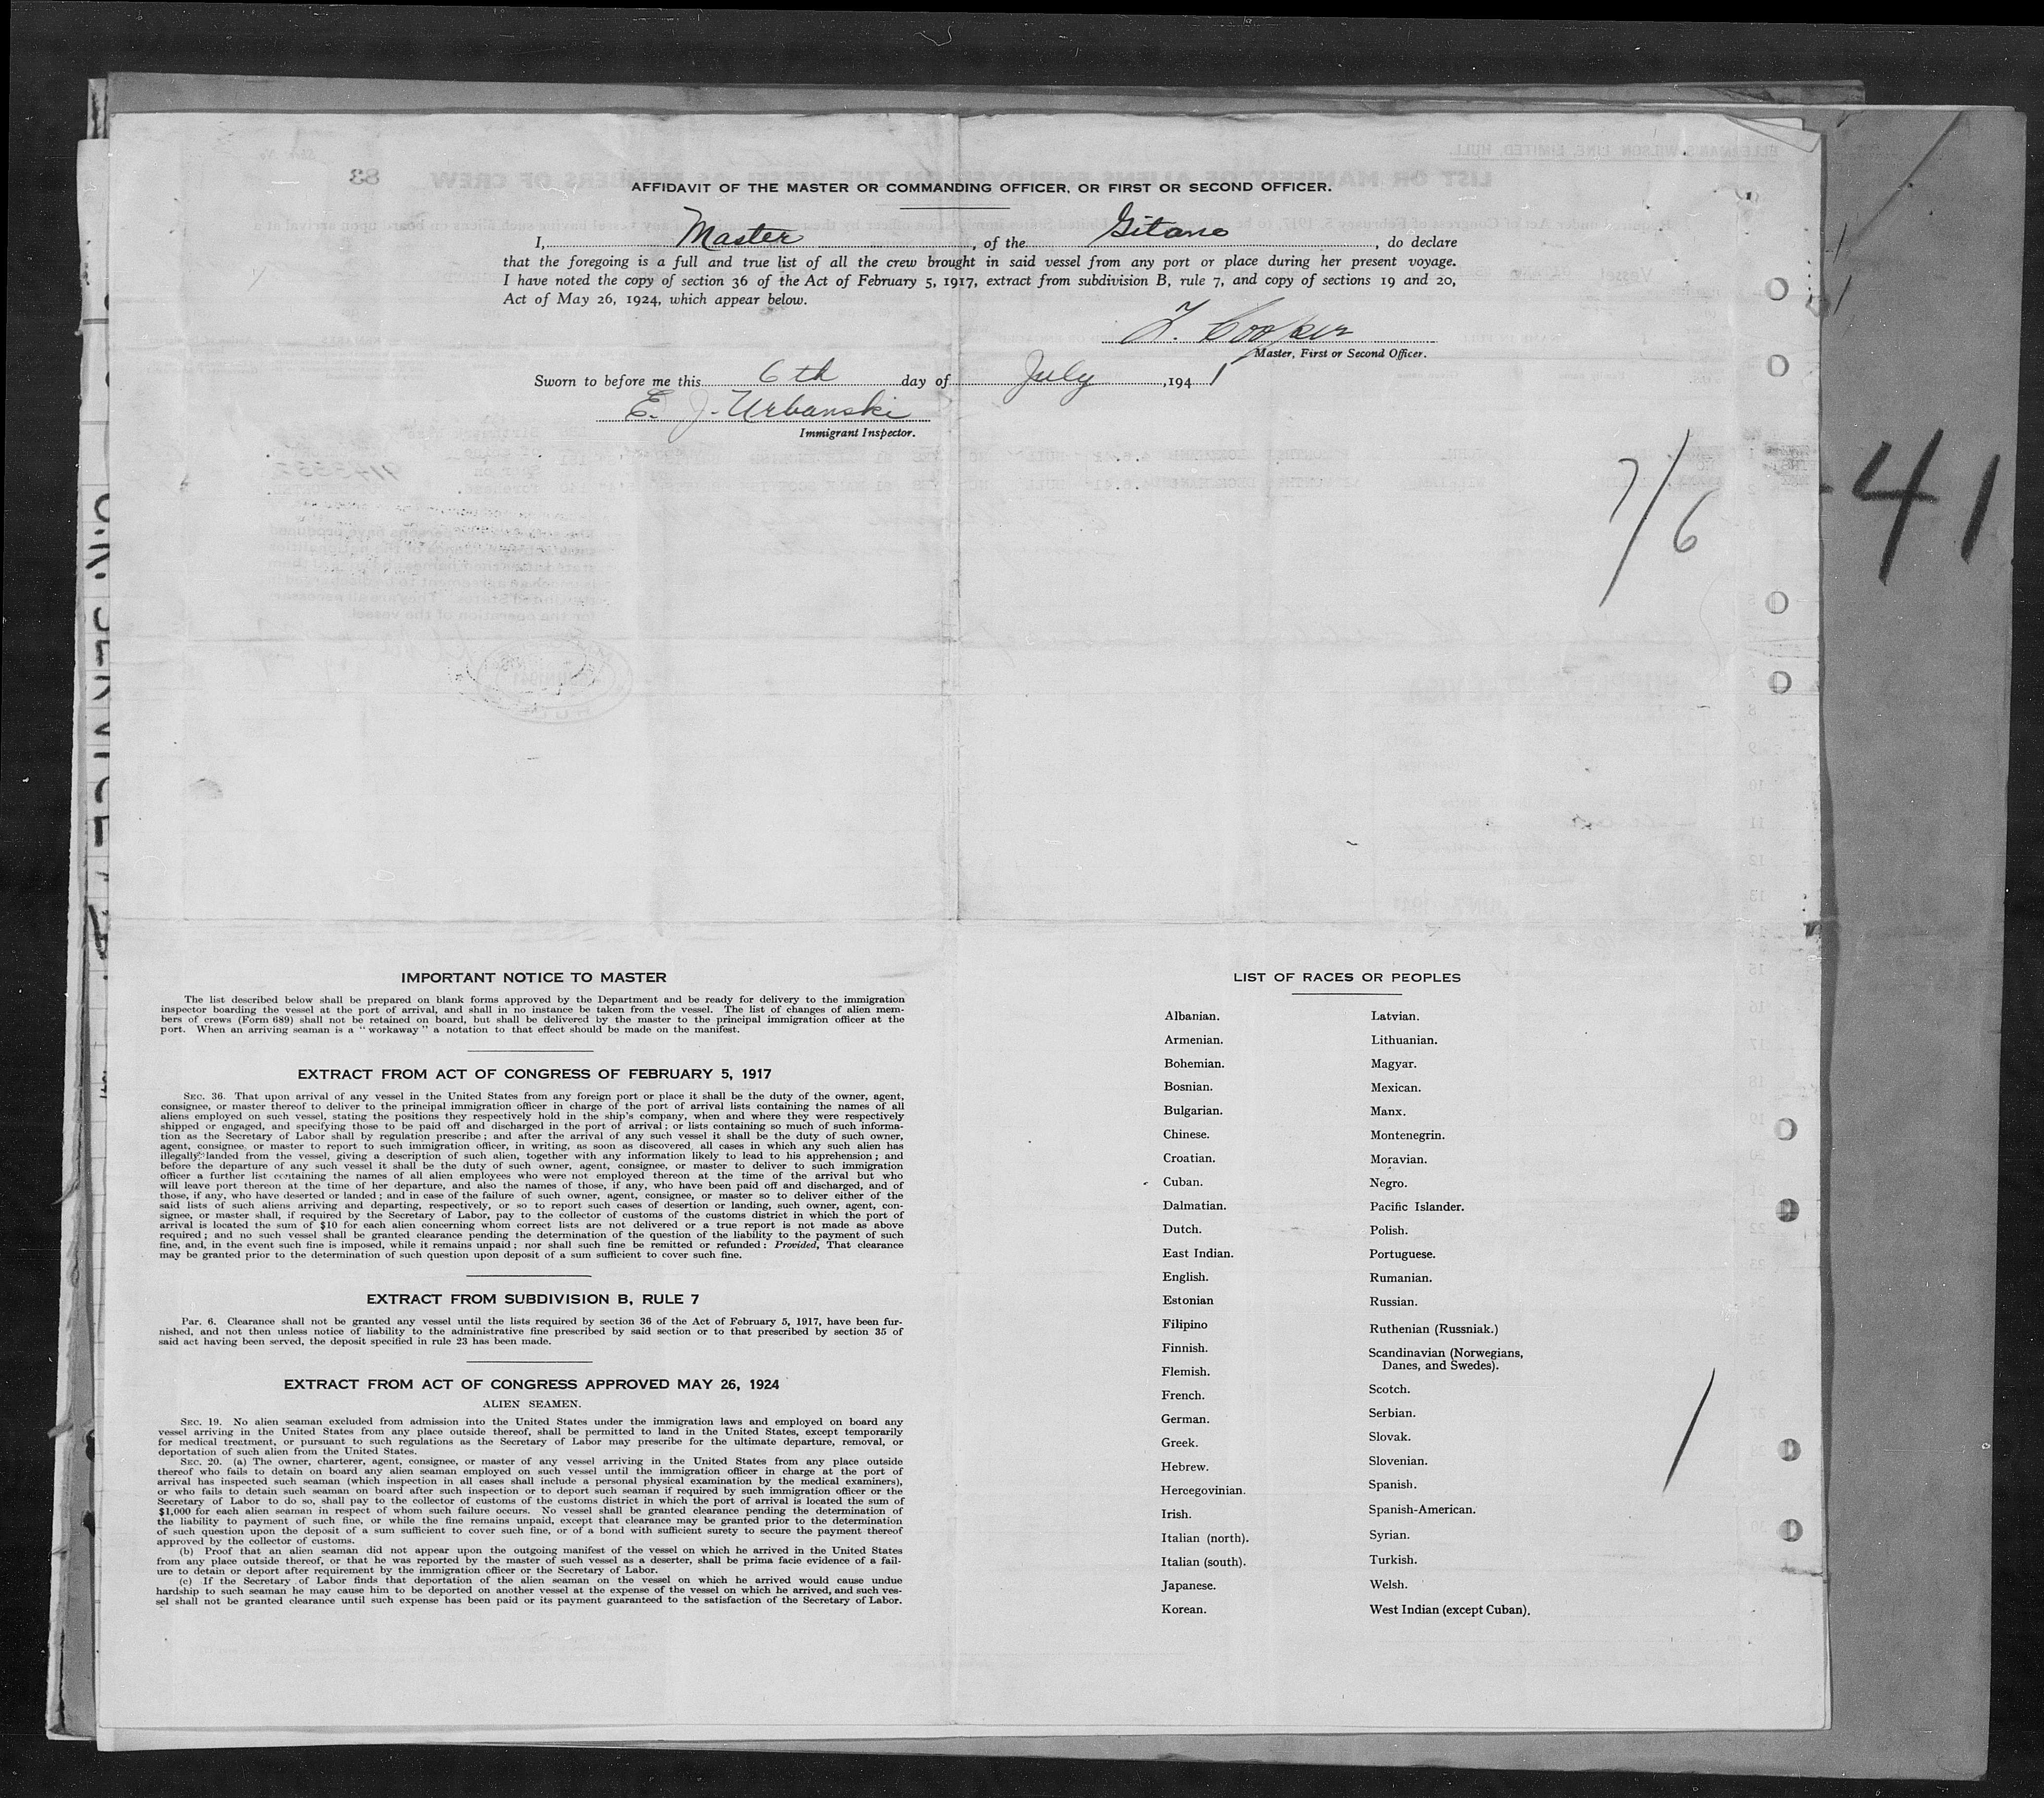 83
AFFIDAVIT OF THE MASTER OR COMMANDING OFFICER, OR FIRST OR SECOND OFFICER.
I, Master, of the Gitano, do declare
that the foregoing is a full and true list of all the crew brought in said vessel from any port or place during her present voyage.
I have noted the copy of section 36 of the Act of February 5, 1917, extract from subdivision B, rule 7, and copy of sections 19 and 20,
Act of May 26, 1924, which appear below.
Master, First or Second Officer.
Sworn to before me this 6th day of July, 1941
E. J. Urbanski
Immigrant Inspector.
7/6
41
IMPORTANT NOTICE TO MASTER
The list described below shall be prepared on blank forms approved by the Department and be ready for delivery to the immigration
inspector boarding the vessel at the port of arrival, and shall in no instance be taken from the vessel. The list of changes of alien mem-
bers of crews (Form 689) shall not be retained on board, but shall be delivered by the master to the principal immigration officer at the
port. When an arriving seaman is a "workaway" a notation to that effect should be made on the manifest.
EXTRACT FROM ACT OF CONGRESS OF FEBRUARY 5, 1917
SEC. 36. That upon arrival of any vessel in the United States from any foreign port or place it shall be the duty of the owner, agent,
consignee, or master thereof to deliver to the principal immigration officer in charge of the port of arrival lists containing the names of all
aliens employed on such vessel, stating the positions they respectively hold in the ship's company, when and where they were respectively
shipped or engaged, and specifying those to be paid off and discharged in the port of arrival; or lists containing so much of such informa-
tion as the Secretary of Labor shall by regulation prescribe; and after the arrival of any such vessel it shall be the duty of such owner,
agent, consignee, or master to report to such immigration officer, in writing, as soon as discovered, all cases in which any such alien has
illegally landed from the vessel, giving a description of such alien, together with any information likely to lead to his apprehension; and
before the departure of any such vessel it shall be the duty of such owner, agent, consignee, or master to deliver to such immigration
officer a further list containing the names of all alien employees who were not employed thereon at the time of the arrival but who
will leave port thereon at the time of her departure, and also the names of those, if any, who have been paid off and discharged, and of
those, if any, who have deserted or landed; and in case of the failure of such owner, agent, consignee, or master so to deliver either of the
said lists of such aliens arriving and departing, respectively, or so to report such cases of desertion or landing, such owner, agent, con-
signee, or master shall, if required by the Secretary of Labor, pay to the collector of customs of the customs district in which the port of
arrival is located the sum of $10 for each alien concerning whom correct lists are not delivered or a true report is not made as above
required; and no such vessel shall be granted clearance pending the determination of the question of the liability to the payment of such
fine, and, in the event such fine is imposed, while it remains unpaid; nor shall such fine be remitted or refunded: Provided, That clearance
may be granted prior to the determination of such question upon deposit of a sum sufficient to cover such fine.
EXTRACT FROM SUBDIVISION B, RULE 7
PAR. 6. Clearance shall not be granted any vessel until the lists required by section 36 of the Act of February 5, 1917, have been fur-
nished, and not then unless notice of liability to the administrative fine prescribed by said section or to that prescribed by section 35 of
said act having been served, the deposit specified in rule 23 has been made.
EXTRACT FROM ACT OF CONGRESS APPROVED MAY 26, 1924
ALIEN SEAMEN.
SEC. 19. No alien seaman excluded from admission into the United States under the immigration laws and employed on board any
vessel arriving in the United States from any place outside thereof, shall be permitted to land in the United States, except temporarily
for medical treatment, or pursuant to such regulations as the Secretary of Labor may prescribe for the ultimate departure, removal, or
deportation of such alien from the United States.
SEC. 20. (a) The owner, charterer, agent, consignee, or master of any vessel arriving in the United States from any place outside
thereof who fails to detain on board any alien seaman employed on such vessel until the immigration officer in charge at the port of
arrival has inspected such seaman (which inspection in all cases shall include a personal physical examination by the medical examiners),
or who fails to detain such seaman on board after such inspection or to deport such seaman if required by such immigration officer or the
Secretary of Labor to do so, shall pay to the collector of customs of the customs district in which the port of arrival is located the sum of
$1,000 for each alien seaman in respect of whom such failure occurs. No vessel shall be granted clearance pending the determination of
the liability to payment of such fine, or while the fine remains unpaid, except that clearance may be granted prior to the determination
of such question upon the deposit of a sum sufficient to cover such fine, or of a bond with sufficient surety to secure the payment thereof
approved by the collector of customs.
(b) Proof that an alien seaman did not appear upon the outgoing manifest of the vessel on which he arrived in the United States
from any place outside thereof, or that he was reported by the master of such vessel as a deserter, shall be prima facie evidence of a fail-
ure to detain or deport after requirement by the immigration officer or the Secretary of Labor.
(c) If the Secretary of Labor finds that deportation of the alien seaman on the vessel on which he arrived would cause undue
hardship to such seaman he may cause him to be deported on another vessel at the expense of the vessel on which he arrived, and such ves-
sel shall not be granted clearance until such expense has been paid or its payment guaranteed to the satisfaction of the Secretary of Labor.
LIST OF RACES OR PEOPLES
Albanian.
Armenian.
Bohemian.
Bosnian.
Bulgarian.
Chinese.
Croatian.
Cuban.
Dalmatian.
Dutch.
East Indian.
English.
Estonian
Filipino
Finnish.
Flemish.
French.
German.
Greek.
Hebrew.
Hercegovinian.
Irish.
Italian (north).
Italian (south).
Japanese.
Korean.
Latvian.
Lithuanian.
Magyar.
Mexican.
Manx.
Montenegrin.
Moravian.
Negro.
Pacific Islander.
Polish.
Portuguese.
Rumanian.
Russian.
Ruthenian (Russniak.)
Scandinavian (Norwegians,
Danes, and Swedes).
Scotch.
Serbian.
Slovak.
Slovenian.
Spanish.
Spanish-American.
Syrian.
Turkish.
Welsh.
West Indian (except Cuban).